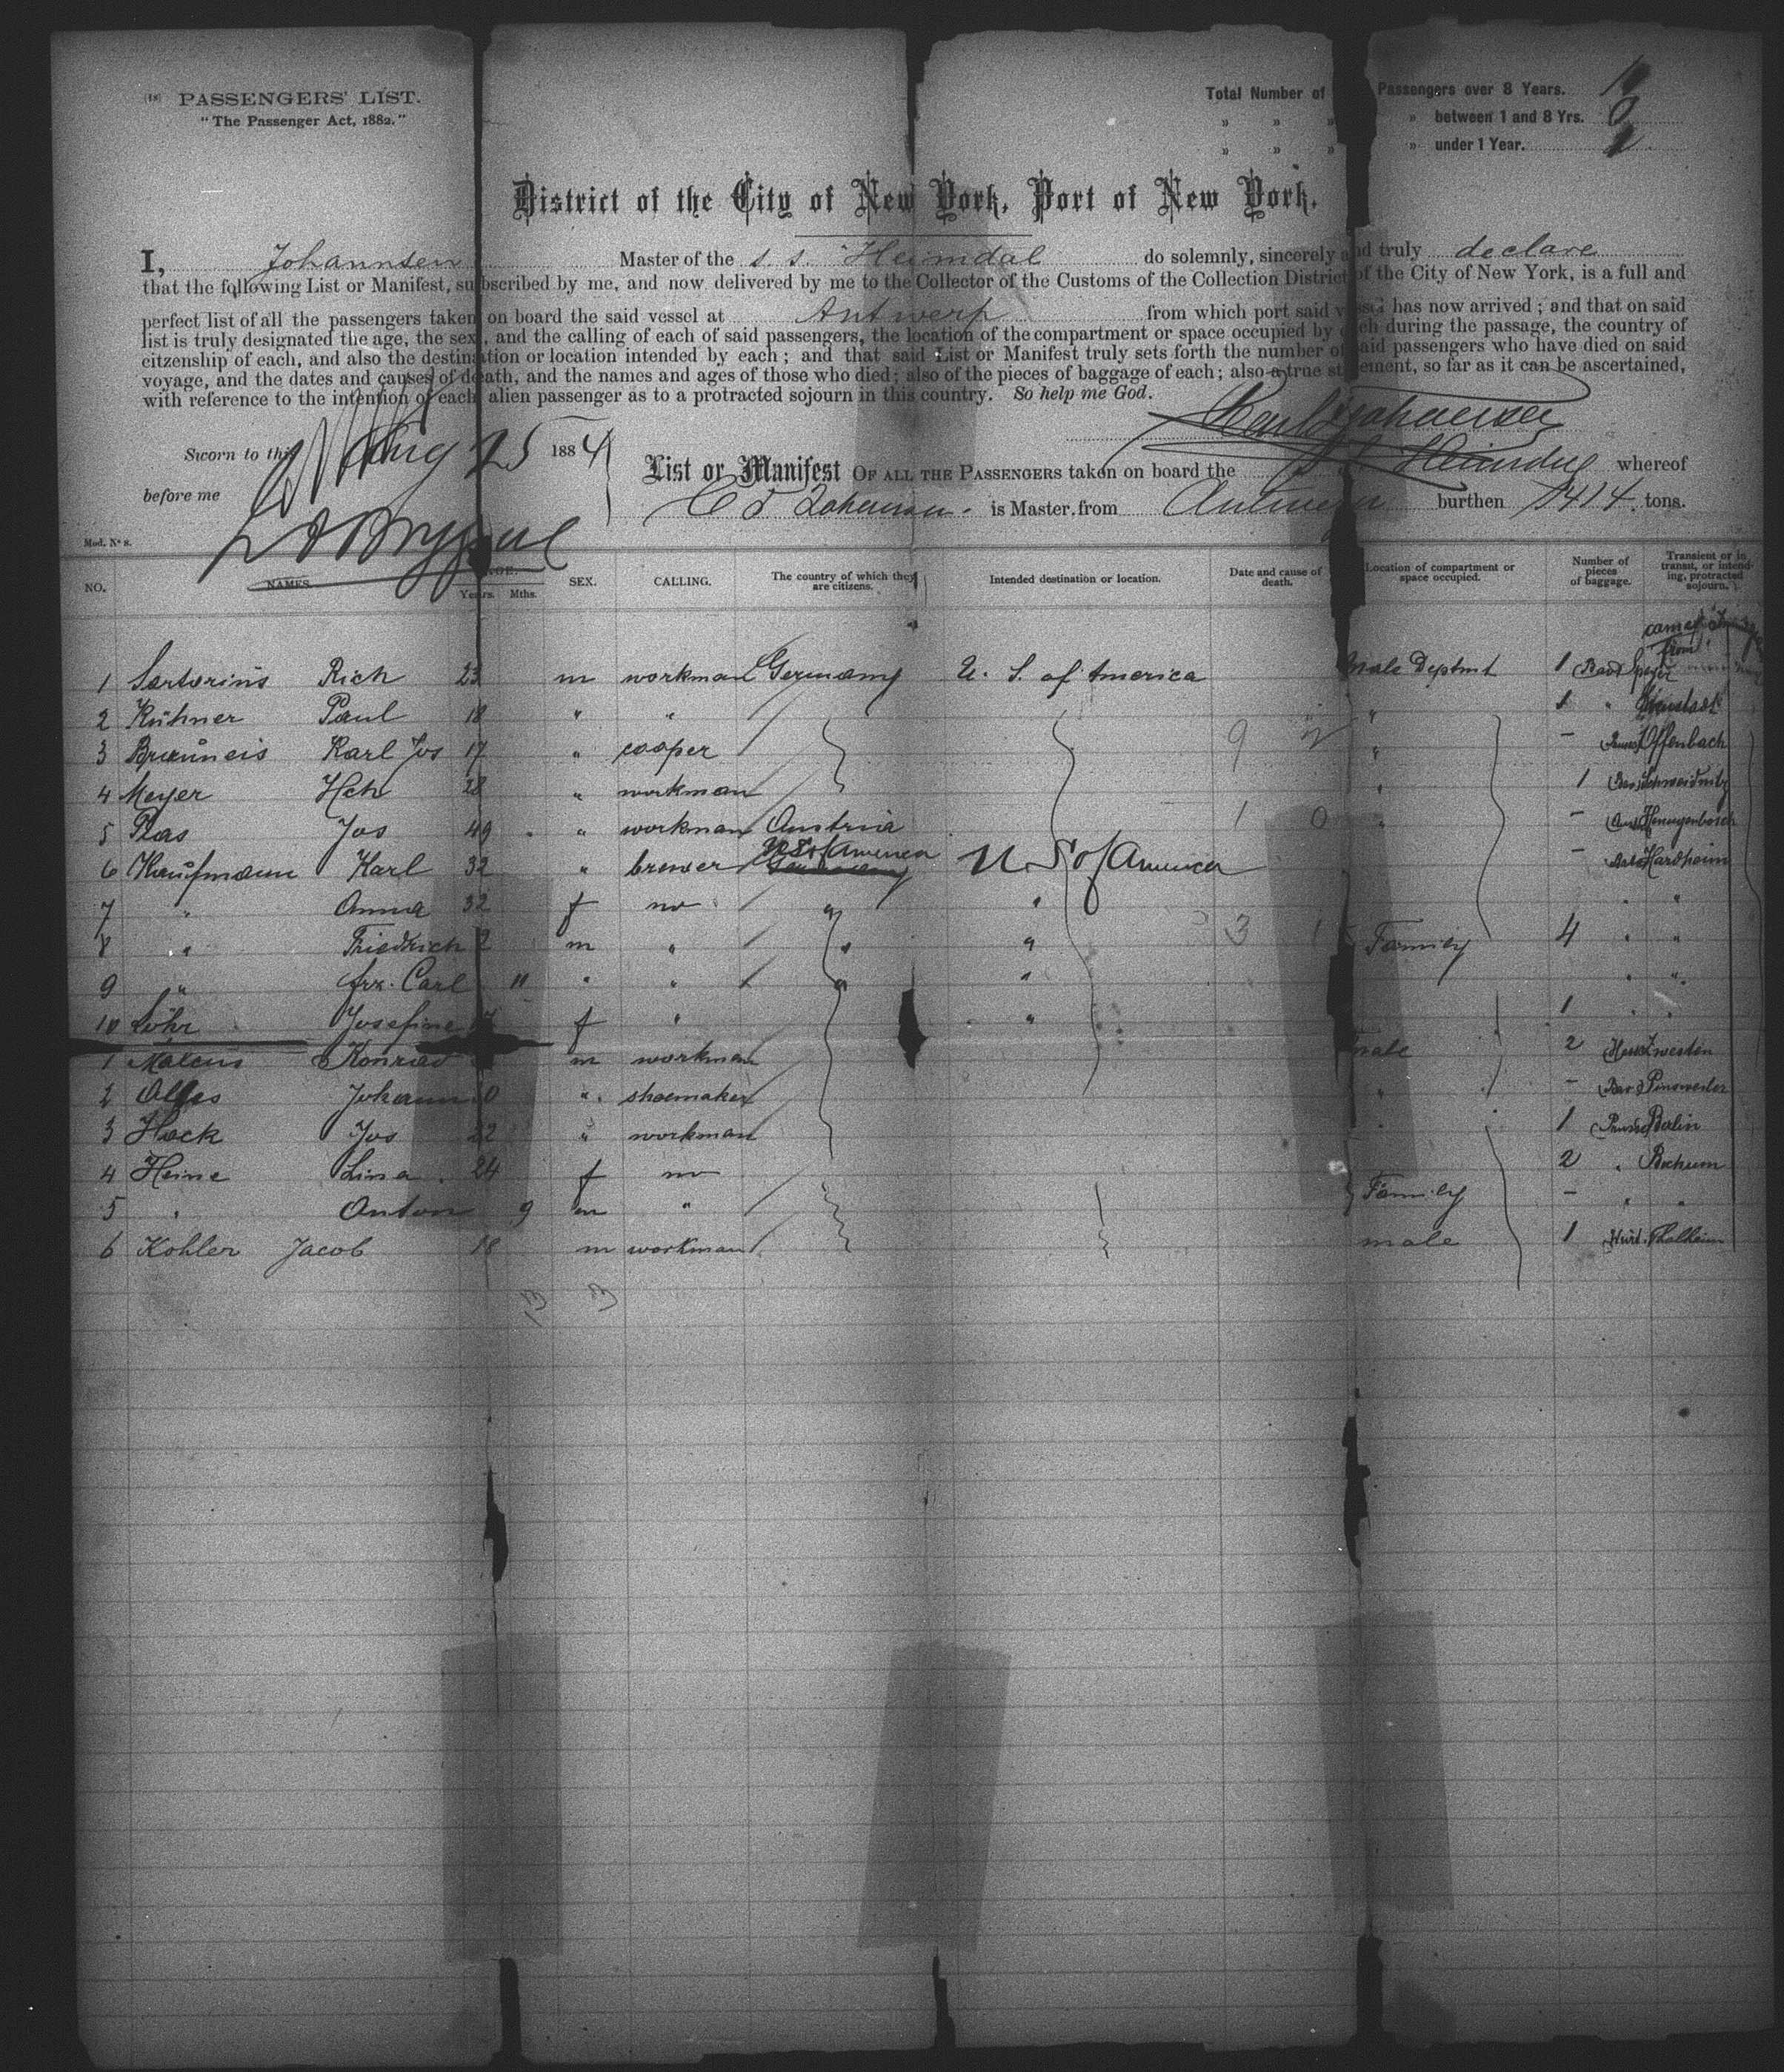 (18) PASSENGERS' LIST.
"The Passenger Act, 1882."
Total Number of Passengers over 8 Years.
" " " " between 1 and 8 Yrs. 0
" " " " under 1 Year.
District of the City of New York, Port of New York.
I, Johannsen Master of the s. s. Heimdal do solemnly, sincerely and truly declare
that the following List or Manifest, subscribed by me, and now delivered by me to the Collector of the Customs of the Collection District of the City of New York, is a full and
perfect list of all the passengers taken on board the said vessel at Antwerp from which port said vessel has now arrived; and that on said
list is truly designated the age, the sex, and the calling of each of said passengers, the location of the compartment or space occupied by each during the passage, the country of
citzenship of each, and also the destination or location intended by each; and that said List or Manifest truly sets forth the number of said passengers who have died on said
voyage, and the dates and causes of death, and the names and ages of those who died; also of the pieces of baggage of each; also a true statement, so far as it can be ascertained,
with reference to the intention of each alien passenger as to a protracted sojourn in this country. So help me God.
Sworn to this Aug 25 1884
before me
List or Manifest OF ALL THE PASSENGERS taken on board the Heimdal whereof
is Master from Antwerp burthen 1414 tons.
Mod. Nº 8.
NO. NAMES. AGE. Years. Mths. SEX. CALLING. The country of which they are citizens. Intended destination or location. Date and cause of death. Location of compartment or space occupied. Number of pieces of baggage. Transient or in transit, or intending, protracted sojourn.
came from
1 Sartorius Rich 23 m workman Germany U. S. of America male Deptmt 1 Speyer
2 Kühner Paul 18 " " " 1 "
3 Brauneis Karl Jos 17 " cooper " – Offenbach
4 Meyer Hch 28 " workman " 1
5 Jos 49 " workman Austria " –
6 Kaufmann Karl 32 " brewer U S of America Germany U. S. of America – Hardheim
7 " Anna 32 f no " " " "
8 " Friedrich 2 m " " " Family 4 " "
9 " Frz. Carl 11 " " " " " "
10 Löhr Josefine f " " 1 " "
1 Konrad m workman male 2
2 Johann " shoemaker " –
3 Hock Jos 22 " workman " 1
4 Heine Lina 24 f no 2 " Bochum
5 " Anton 9 m " Family – " "
6 Kohler Jacob 18 m workman male 1 Thalheim